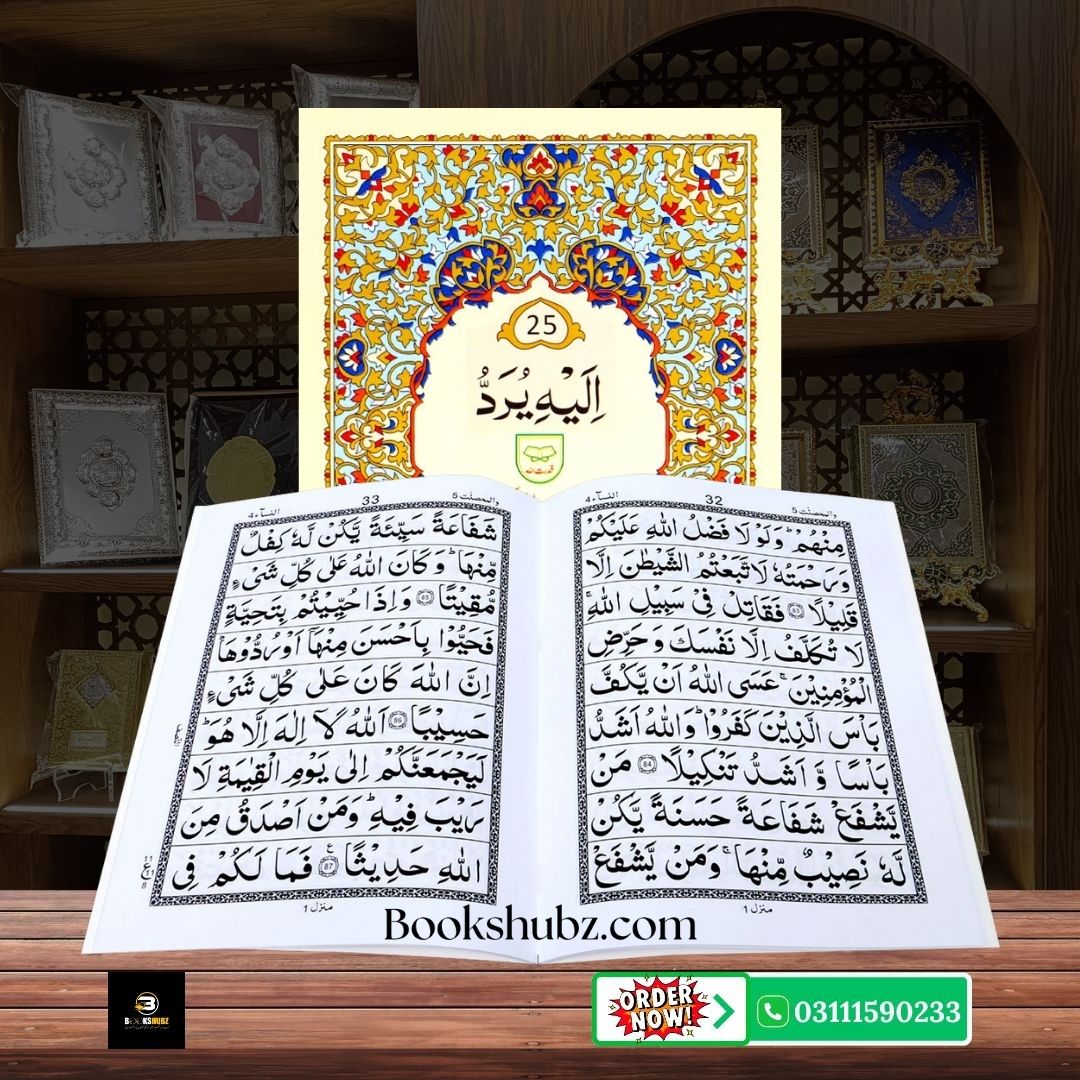 25
اِلَيْهِ يُرَدُّ
قدرت الله
والمحصنٰت 5
32
النسآء 4
مِنْهُمْ ؕ وَلَوْ لَا فَضْلُ اللّٰهِ عَلَيْكُمْ
وَرَحْمَتُهٗ لَا تَّبَعْتُمُ الشَّيْطٰنَ اِلَّا
قَلِيْلًا ﴿83﴾ فَقَاتِلْ فِىْ سَبِيْلِ اللّٰهِ ۚ
لَا تُكَلَّفُ اِلَّا نَفْسَكَ وَحَرِّضِ
الْمُؤْمِنِيْنَ ۚ عَسَى اللّٰهُ اَنْ يَّكُفَّ
بَاْسَ الَّذِيْنَ كَفَرُوْا ؕ وَاللّٰهُ اَشَدُّ
بَاْسًا وَّ اَشَدُّ تَنْكِيْلًا ﴿84﴾ مَنْ
يَّشْفَعْ شَفَاعَةً حَسَنَةً يَّكُنْ
لَّهٗ نَصِيْبٌ مِّنْهَا ۚ وَمَنْ يَّشْفَعْ
منزل 1
والمحصنٰت 5
33
النسآء 4
شَفَاعَةً سَيِّئَةً يَّكُنْ لَّهٗ كِفْلٌ
مِّنْهَا ؕ وَكَانَ اللّٰهُ عَلٰى كُلِّ شَىْءٍ
مُّقِيْتًا ﴿85﴾ وَاِذَا حُيِّيْتُمْ بِتَحِيَّةٍ
فَحَيُّوْا بِاَحْسَنَ مِنْهَآ اَوْ رُدُّوْهَا ؕ
اِنَّ اللّٰهَ كَانَ عَلٰى كُلِّ شَىْءٍ
حَسِيْبًا ﴿86﴾ اَللّٰهُ لَآ اِلٰهَ اِلَّا هُوَ ؕ
لَيَجْمَعَنَّكُمْ اِلٰى يَوْمِ الْقِيٰمَةِ لَا
رَيْبَ فِيْهِ ؕ وَمَنْ اَصْدَقُ مِنَ
اللّٰهِ حَدِيْثًا ﴿87﴾ ع فَمَا لَكُمْ فِى
11
ع
11
8
منزل 1
Bookshubz.com
BOOKSHUBZ
ORDER
NOW!
03111590233